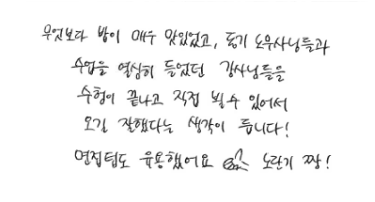 무엇보다 밥이 매우 맛있었고, 동기 노무사님들과
수업을 열심히 들었던 강사님들을
수험이 끝나고 직접 뵐 수 있어서
오길 잘했다는 생각이 듭니다!
면접팁도 유용했어요 노란기 짱!